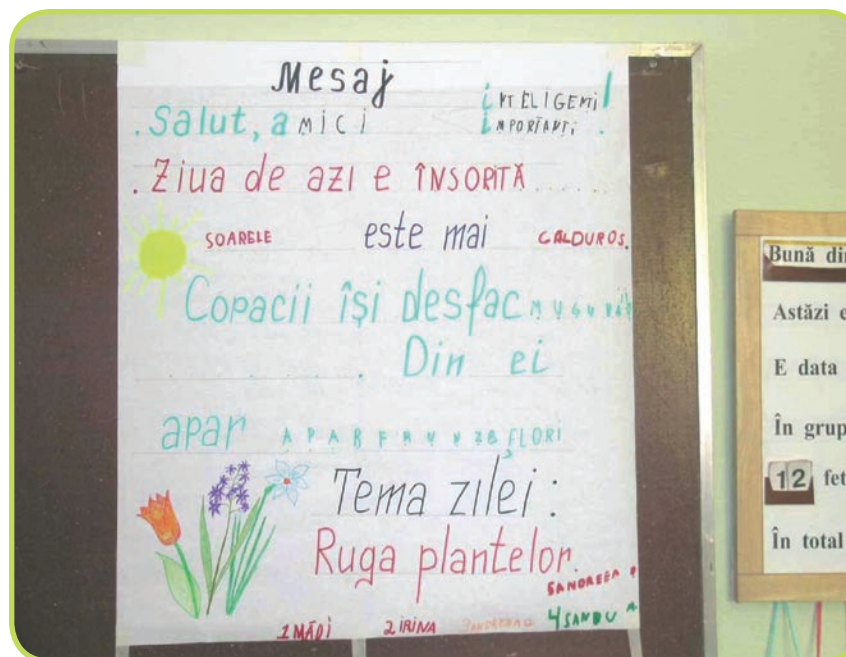 Mesaj
. Salut, amici
INTELIGENȚI!
IMPORTANȚI
. Ziua de azi e ÎNSORITĂ . . . . .
SOARELE este mai CALDUROS.
Copacii își desfac MUGURII
. . . . Din ei
apar APAR FRUNZE FLORI
Tema zilei:
Ruga plantelor.
1 MĂDI 2 IRINA 4 SANDU A.
Bună di
Astăzi e
E data
În grup
12 fet
În total